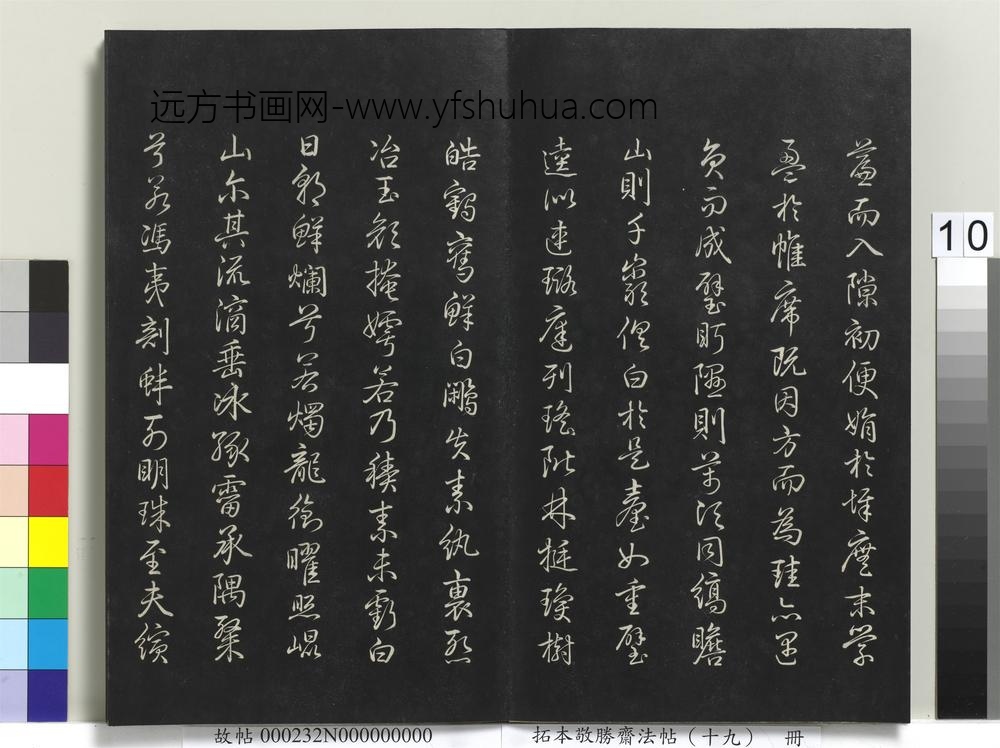 簾而入隙初便娟於墀廡末縈
盈於帷席既因方而為珪亦遇
員而成璧眄隰則万頃同縞瞻
山則千巖俱白於是臺如重璧
逵似連璐庭列瑤階林挺瓊樹
皓鶴奪鮮白鷳失素紈褏慙
冶玉顏掩嫮若乃積素未虧白
日朝鮮爛兮若燭龍銜曜照崐
山尔其流滴垂冰緣霤承隅粲
兮若馮夷剖蚌列明珠至夫繽
远方书画网-www.yfshuhua.com
10
故帖 000232N000000000
拓本敬勝齋法帖（十九） 冊